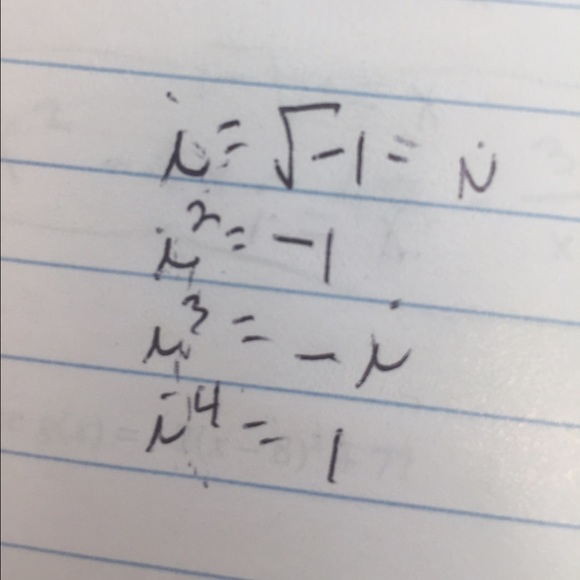 i = √-1 = i
i² = -1
i³ = -i
i⁴ = 1